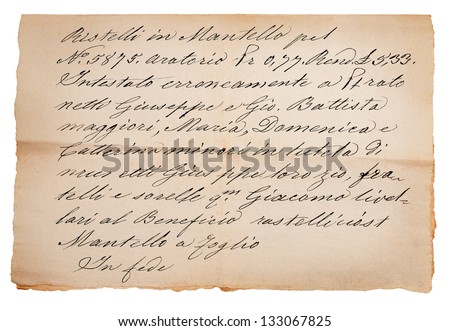 Restelli in Mantello pel
No. 5875. aratorio Pr 0,77. Rend £ 5,33.
Intestato erroneamente a
netti Giuseppe e Gio. Battista
maggiori, Maria, Domenica e
Catterina minori in tutela di
Giuseppe loro zio, fra-
telli e sorelle qm Giacomo livel-
lari al Beneficio
Mantello a foglio
In fede
shutterstock
www.shutterstock.com · 133067825